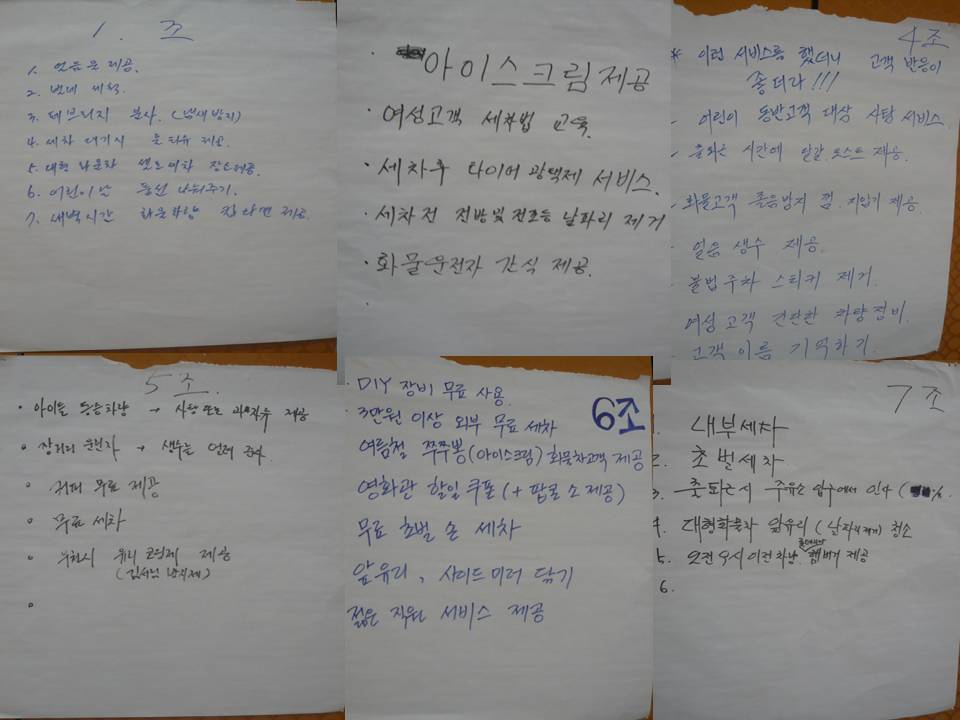 1. 조
1. 얼음물 제공.
2. 번대 세척.
3. 페브리지 분사. (냄새방지)
4. 세차 대기시 음료 제공.
5. 대형 나운차 셀프세차 장소제공.
6. 어린이날 풍선 나눠주기.
7. 새벽시간 화물차량 컵라면 제공.
· 아이스크림제공
· 여성고객 세차법 교육.
· 세차후 타이어 광택제 서비스.
· 세차전 전방및 전조등 날파리 제거
· 화물운전자 간식 제공.
4조
* 이런 서비스를 했더니 고객 반응이
좋더라!!!
- 어린이 동반고객 대상 사탕 서비스.
- 출퇴근 시간에 달걀.토스트 제공.
- 화물고객 졸음방지 껌. 지압기 제공.
- 얼음 생수 제공.
- 불법주차 스티커 제거.
여성 고객 간단한 차량정비.
고객 이름 기억하기.
5조
· 아이들 동승차량 → 사탕 또는 과일쥬스 제공
· 장거리 운전자 → 생수는 얼려
· 커피 무료 제공
· 무료 세차
· 주유시 유리 코팅제 제공
(김서림 방지제)
6조
· DIY 장비 무료 사용.
· 3만원 이상 외부 무료 세차
여름철 쭈쭈뽕(아이스크림) 화물차고객 제공
영화관 할일 쿠폰 (+ 팝콘 소제공)
무료 초벌 손 세차
앞유리, 사이드미러 닦기
젊은 직원 서비스 제공
7조
1. 내부세차
2. 초벌세차
3. 출퇴근시 주유소 입구에서 인사
4. 대형화물차 앞유리 (날파리제거) 청소
5. 오전 9시 이전차량 롯데리아 햄버거 제공
6.